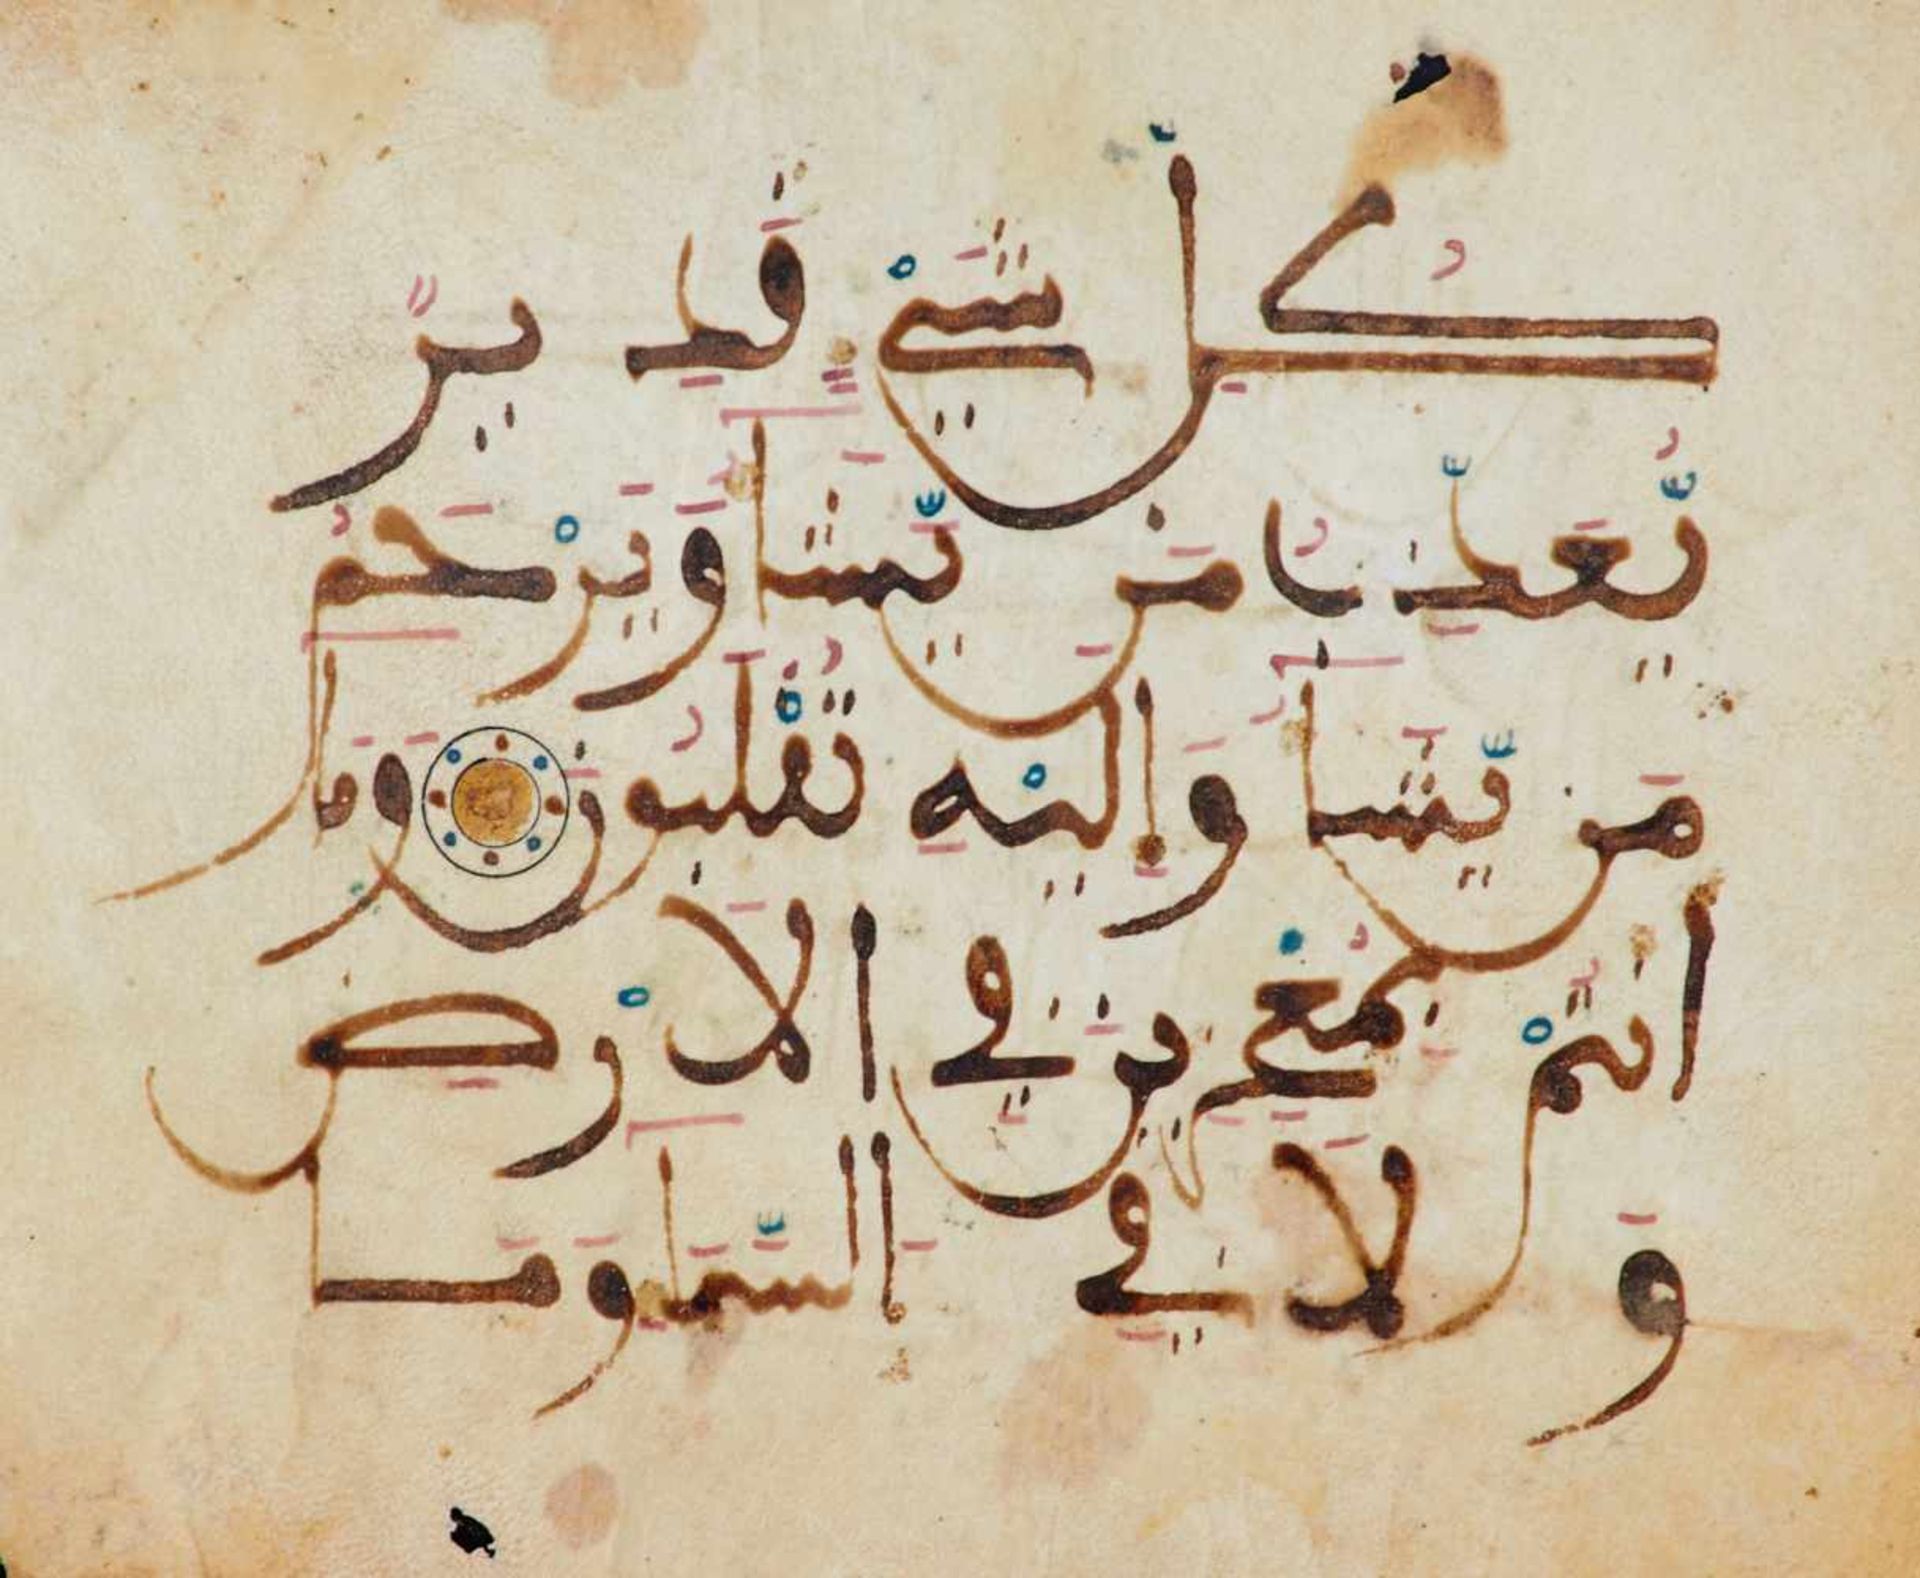 كُلِّ شَيْءٍ قَدِيرٌ
يُّعَذِّبُ مَنْ يَّشَآءُ وَيَرْحَمُ
مَنْ يَّشَآءُ وَإِلَيْهِ تُقْلَبُونَ وَمَآ
أَنتُمْ بِمُعْجِزِينَ فِي الَارْضِ
وَلَا فِي السَّمَآءِ وَمَا